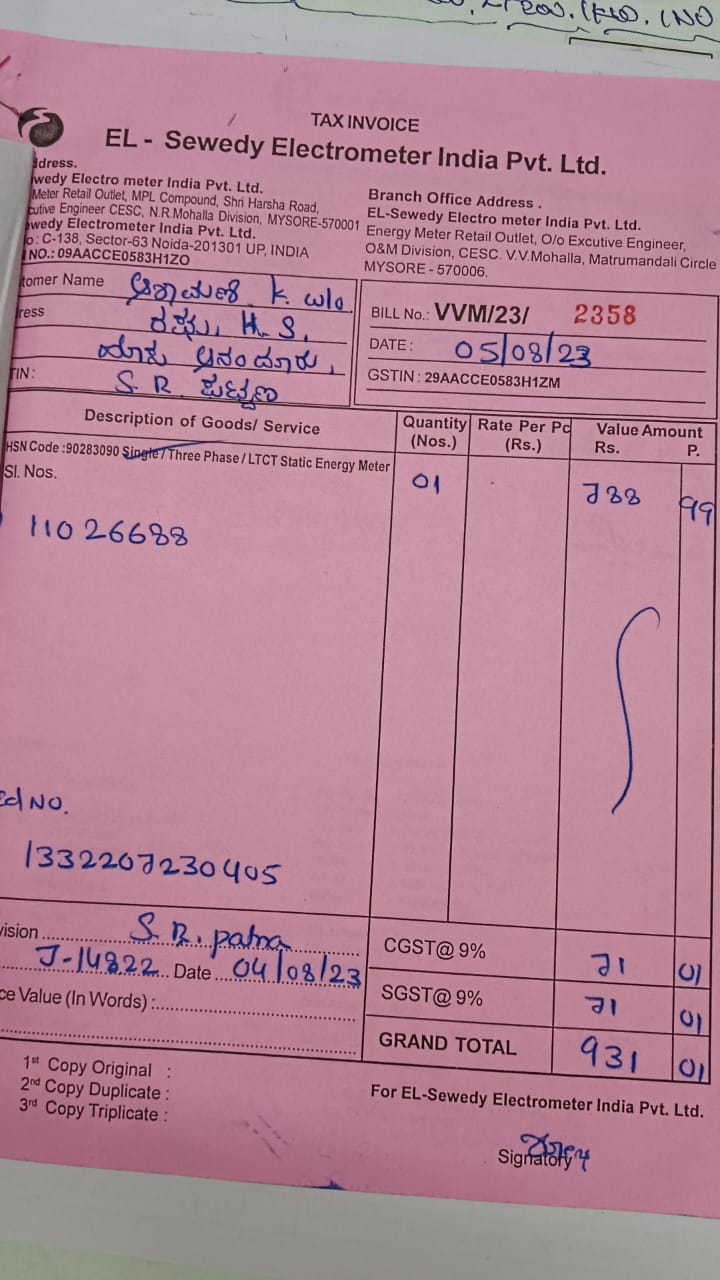 TAX INVOICE
EL - Sewedy Electrometer India Pvt. Ltd.
dress.
wedy Electro meter India Pvt. Ltd.
Meter Retail Outlet, MPL Compound, Shri Harsha Road,
cutive Engineer CESC, N.R.Mohalla Division, MYSORE-570001
wedy Electrometer India Pvt. Ltd.
o : C-138, Sector-63 Noida-201301 UP, INDIA
NO.: 09AACCE0583H1ZO
Branch Office Address .
EL-Sewedy Electro meter India Pvt. Ltd.
Energy Meter Retail Outlet, O/o Excutive Engineer,
O&M Division, CESC. V.V.Mohalla, Matrumandali Circle
MYSORE - 570006.
tomer Name K. w/o
ress H. S,
TIN: S. R.
BILL No.: VVM/23/ 2358
DATE : 05/08/23
GSTIN : 29AACCE0583H1ZM
Description of Goods/ Service
Quantity (Nos.)
Rate Per Pc (Rs.)
Value Amount
Rs. P.
HSN Code :90283090 Single / Three Phase / LTCT Static Energy Meter
Sl. Nos.
01 788 99
11026688
ed NO.
1332207230405
vision S. R. patna
J-14822 Date 04/08/23
ce Value (In Words) :
CGST@ 9% 71 01
SGST@ 9% 71 01
GRAND TOTAL 931 01
1st Copy Original :
2nd Copy Duplicate :
3rd Copy Triplicate :
For EL-Sewedy Electrometer India Pvt. Ltd.
Signatory